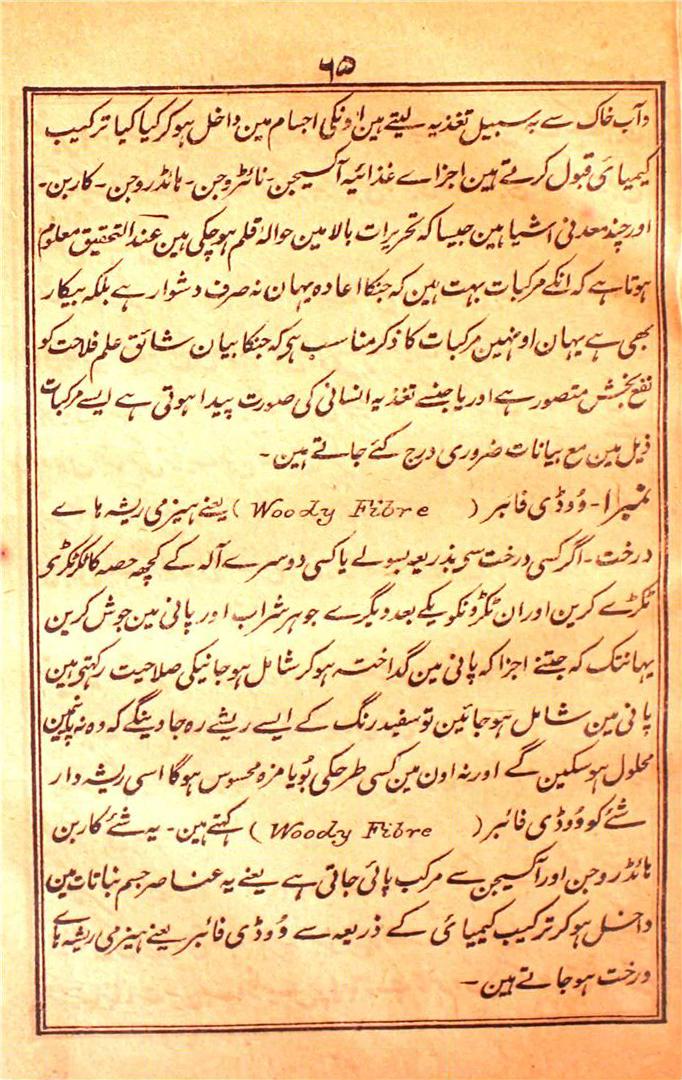 ۶۵
وآب خاک سے پر سبیل تغذیہ لیتے ہین اونکی اجسام مین داخل ہوکر کیا کیا ترکیب
کیمیائی قبول کرتے ہین اجزاے غذائیہ آکسیجن۔ نائٹروجن۔ ہائڈروجن۔ کاربن۔
اور چند معدنی اشیا ہین جیسا کہ تحریرات بالا مین حوالۂ قلم ہوچکی ہین عند التحقیق معلوم
ہوتا ہے کہ انکے مرکبات بہت ہین کہ جنکا اعادہ یہان نہ صرف دشوار ہے بلکہ بیکار
بھی ہے یہان اونہین مرکبات کا ذکر مناسب ہوکہ جنکا بیان شائق علم فلاحت کو
نفع بخش متصور ہے اور یا جنسے تغذیہ انسانی کی صورت پیدا ہوتی ہے ایسے مرکبات
ذیل مین مع بیانات ضروری درج کئے جاتے ہین۔
نمبر۱۔ وُوڈی فائبر (Woody Fibre) یعنے ہیزمی ریشہ ہاے
درخت۔ اگر کسی درخت سی بذریعہ بسولے یا کسی دوسرے آلہ کے کچھہ حصہ کاٹکر ٹکڑی
ٹکڑے کرین اور ان ٹکڑونکو یکے بعد دیگرے جوہر شراب اور پانی مین جوش کرین
یہانتک کہ جتنے اجزا کہ پانی مین گداختہ ہوکر شامل ہوجانیکی صلاحیت رکہتی ہین
پانی مین شامل ہوجائین تو سفید رنگ کے ایسے ریشے رہ جاوینگے کہ وہ نہ پانیمین
محلول ہوسکین گے اور نہ اون مین کسی طرحکی بُو یا مزہ محسوس ہوگا اسی ریشہ دار
شئے کو وُوڈی فائبر (Woody Fibre) کہتے ہین۔ یہ شئے کاربن
ہائڈروجن اور آکسیجن سے مرکب پائی جاتی ہے یعنے یہ عناصر جسم نباتات مین
داخل ہوکر ترکیب کیمیائی کے ذریعہ سے وُوڈی فائبر یعنے ہیزمی ریشہ ہاے
درخت ہوجاتے ہین۔